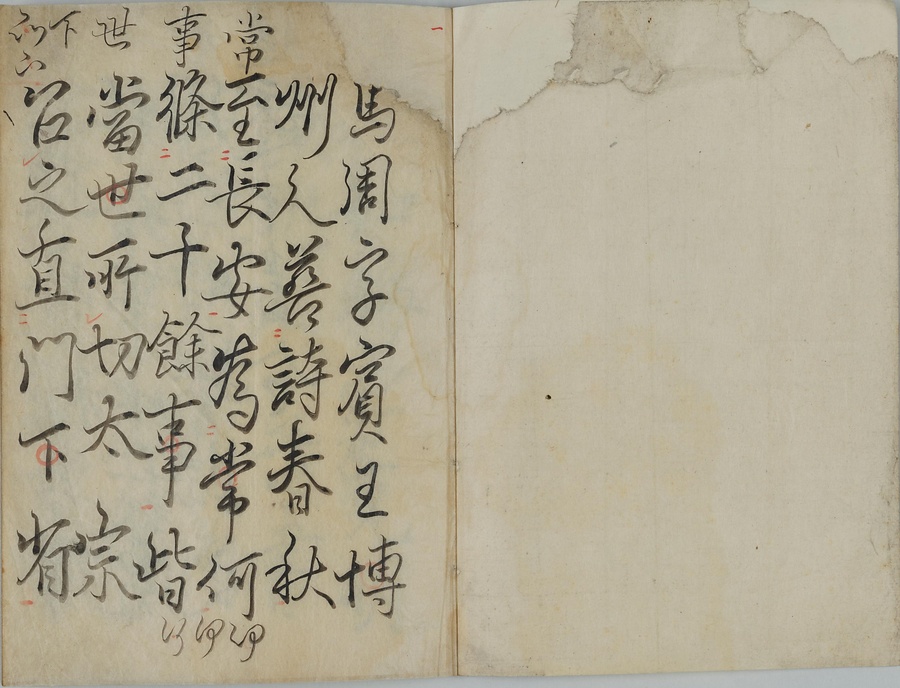 馬周字賓王博
州人善詩春秋
至長安為常何
條二十餘事皆
當世所切太宗
召之直門下省
常
事
世
下